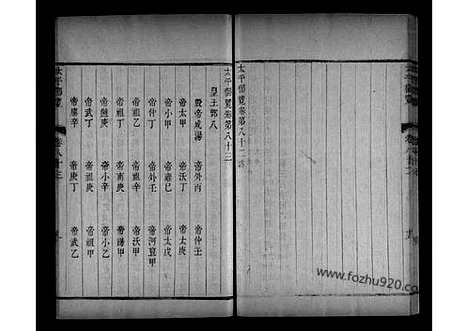 太平御覽卷第八十二
太平御覽卷第八十三
皇王部八
殷帝成湯 帝外丙 帝仲壬
帝太甲 帝沃丁 帝太庚
帝小甲 帝雍己 帝太戊
帝仲丁 帝外壬 帝河亶甲
帝祖乙 帝祖辛 帝沃甲
帝祖丁 帝南庚 帝陽甲
帝盤庚 帝小辛 帝小乙
帝武丁 帝祖庚 帝祖甲
帝廩辛 帝庚丁 帝武乙
太平御覽 卷八十三
www.fozhu920.com